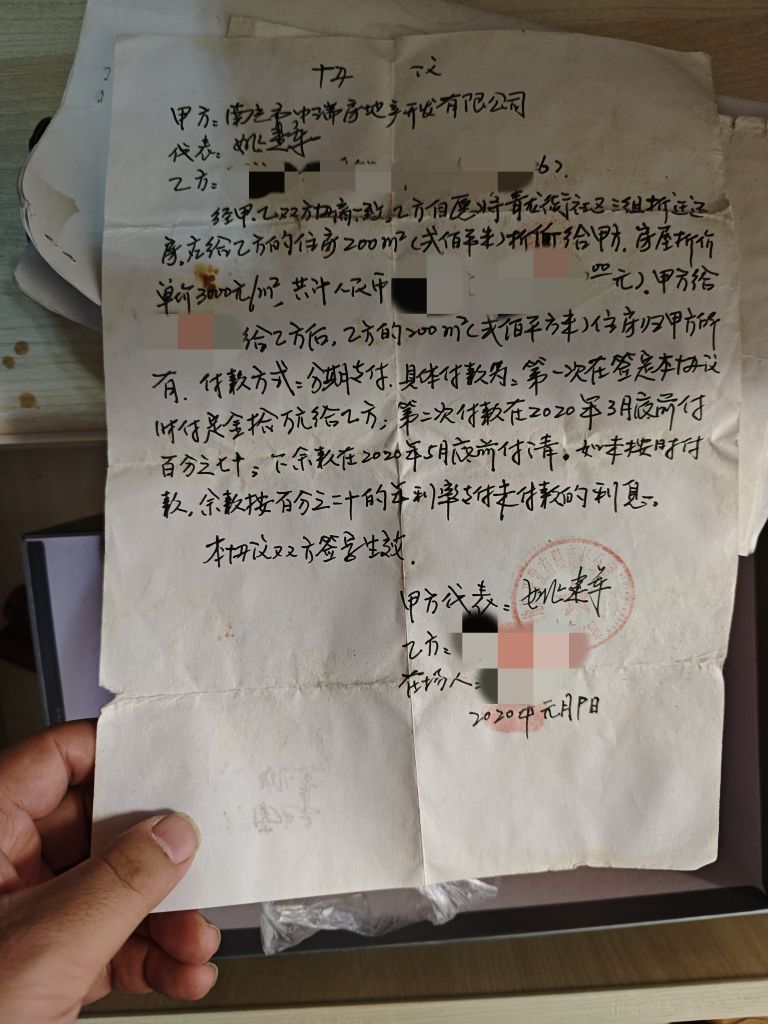 协 议
甲方：南充市中瑞房地产开发有限公司
代表：姚建军
乙方：
经甲、乙双方协商一致，乙方自愿将青龙街社区三组拆迁还
房，应给乙方的住房200m²（贰佰平米）折价给甲方，房屋折价
单价3000元/m²，共计人民币 00元）。甲方给
给乙方后，乙方的200m²（贰佰平方米）住房归甲方所
有，付款方式：分期支付，具体付款为：第一次在签定本协议
时付定金拾万元给乙方；第二次付款在2020年3月底前付
百分之七十；下余款在2020年5月底前付清。如未按时付
款，余款按百分之二十的年利率支付未付款的利息。
本协议双方签字生效.
甲方代表：姚建军
乙方：
在场人：
2020年元月9日